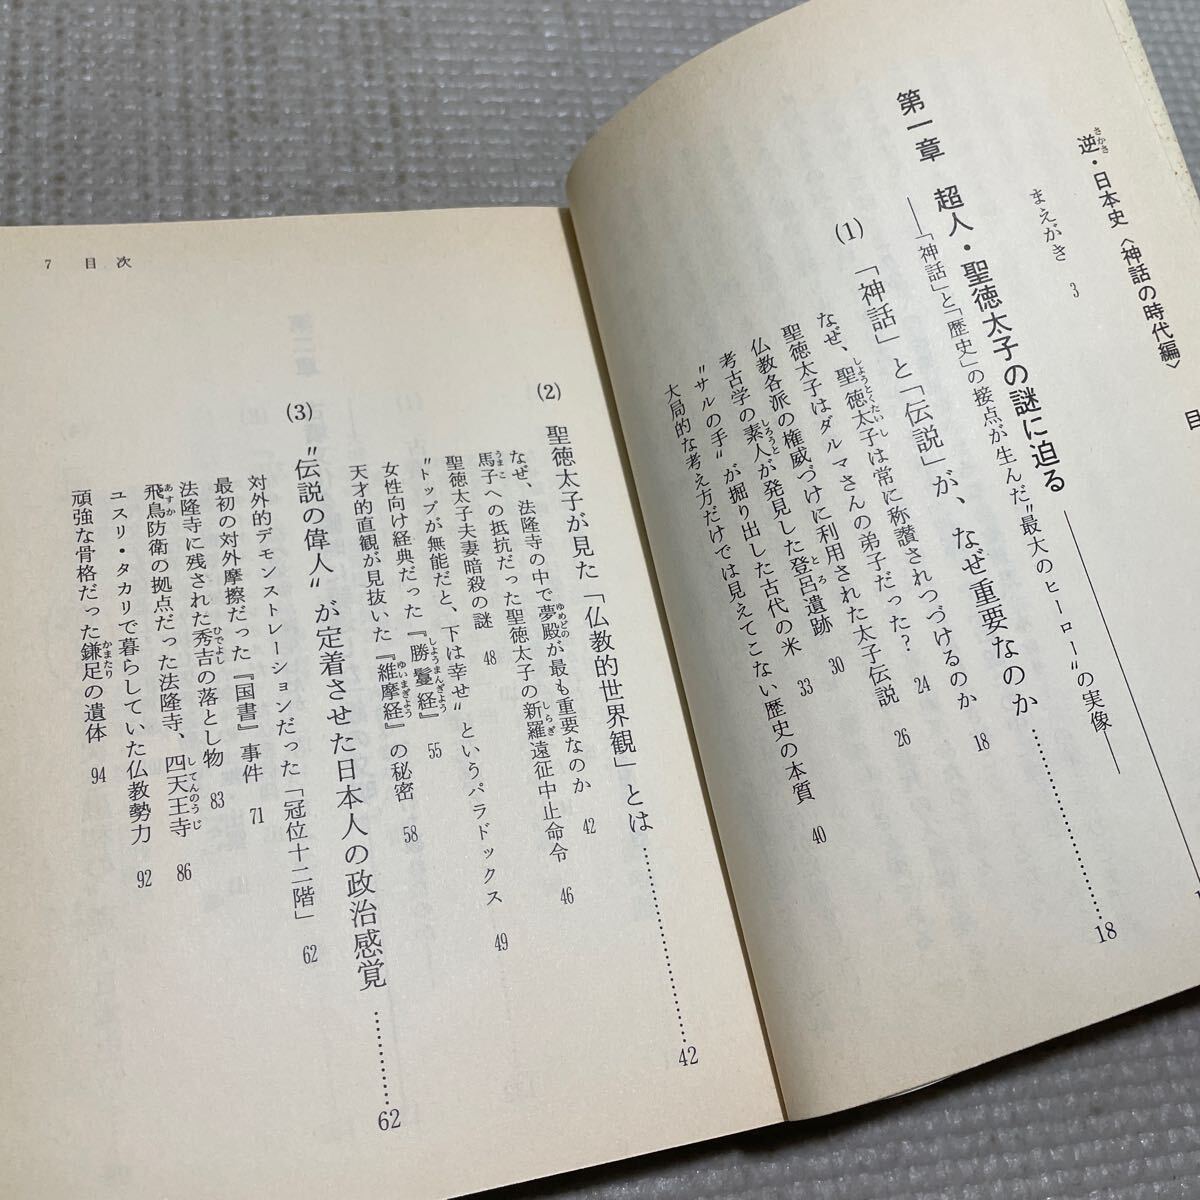 逆・日本史〈神話の時代編〉 目
まえがき 3
第一章 超人・聖徳太子の謎に迫る
――「神話」と「歴史」の接点が生んだ〝最大のヒーロー〟の実像――
(1) 「神話」と「伝説」が、なぜ重要なのか………18
なぜ、聖徳太子は常に称讃されつづけるのか 18
聖徳太子はダルマさんの弟子だった? 24
仏教各派の権威づけに利用された太子伝説 26
考古学の素人が発見した登呂遺跡 30
〝サルの手〟が掘り出した古代の米 33
大局的な考え方だけでは見えてこない歴史の本質 40
7 目次
(2) 聖徳太子が見た「仏教的世界観」とは………42
なぜ、法隆寺の中で夢殿が最も重要なのか 42
馬子への抵抗だった聖徳太子の新羅遠征中止命令 46
聖徳太子夫妻暗殺の謎 48
〝トップが無能だと、下は幸せ〟というパラドックス 49
女性向け経典だった『勝鬘経』 55
天才的直観が見抜いた『維摩経』の秘密 58
(3) 〝伝説の偉人〟が定着させた日本人の政治感覚………62
対外的デモンストレーションだった「冠位十二階」 62
最初の対外摩擦だった『国書』事件 71
法隆寺に残された秀吉の落とし物 83
飛鳥防衛の拠点だった法隆寺、四天王寺 86
ユスリ・タカリで暮らしていた仏教勢力 92
頑強な骨格だった鎌足の遺体 94